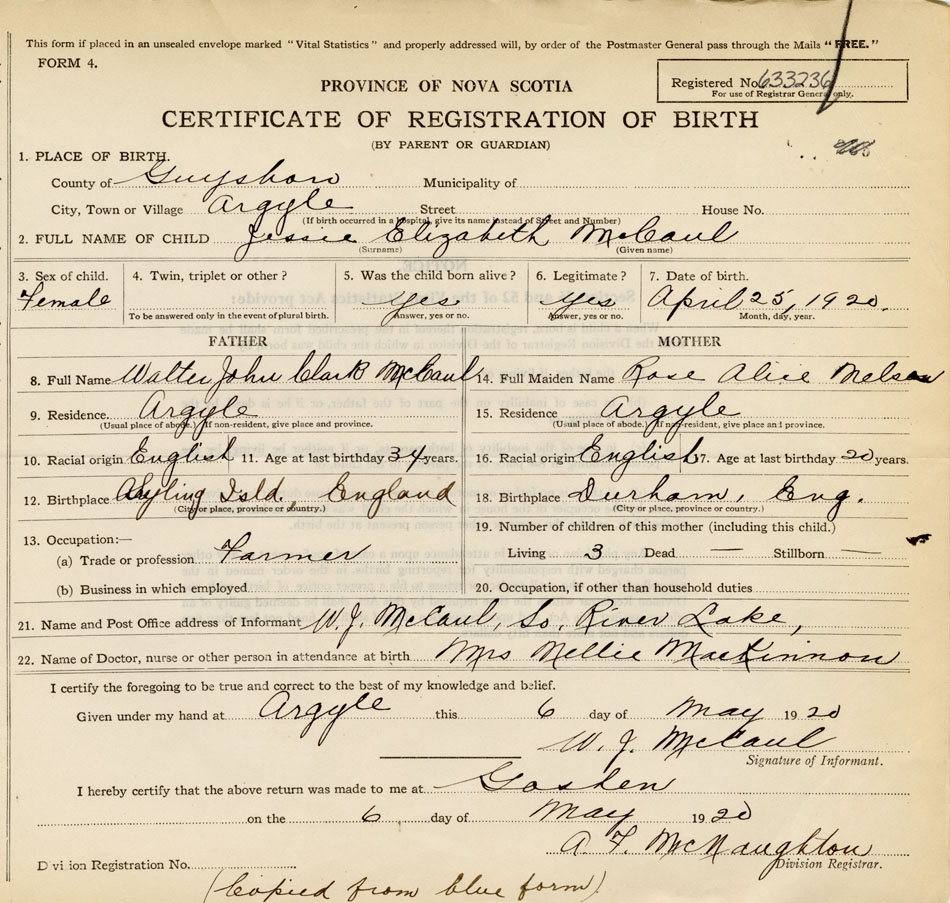 This form if placed in an unsealed envelope marked "Vital Statistics" and properly addressed will, by order of the Postmaster General pass through the Mails "FREE."
FORM 4.
Registered No. 633236
For use of Registrar General only.
PROVINCE OF NOVA SCOTIA
CERTIFICATE OF REGISTRATION OF BIRTH
(BY PARENT OR GUARDIAN)
1. PLACE OF BIRTH.
County of Guysboro Municipality of
City, Town or Village Argyle Street House No.
(If birth occurred in a hospital, give its name instead of Street and Number)
2. FULL NAME OF CHILD Jessie Elizabeth McCaul
(Surname) (Given name)
3. Sex of child. 4. Twin, triplet or other ? 5. Was the child born alive ? 6. Legitimate ? 7. Date of birth.
Female Yes Yes April 25, 1920.
To be answered only in the event of plural birth. Answer, yes or no. Answer, yes or no. Month, day, year.
FATHER MOTHER
8. Full Name Walter John Clark McCaul 14. Full Maiden Name Rose Alice Nelson
9. Residence. Argyle 15. Residence Argyle
(Usual place of abode.) If non-resident, give place and province. (Usual place of abode.) If non-resident, give place and province.
10. Racial origin English 11. Age at last birthday 34 years. 16. Racial origin English 17. Age at last birthday 20 years.
12. Birthplace Isld. England 18. Birthplace Durham, Eng.
(City or place, province or country.) (City or place, province or country.)
13. Occupation:— 19. Number of children of this mother (including this child.)
(a) Trade or profession Farmer Living 3 Dead — Stillborn —
(b) Business in which employed 20. Occupation, if other than household duties
21. Name and Post Office address of Informant W. J. McCaul, So. River Lake,
22. Name of Doctor, nurse or other person in attendance at birth Mrs Nellie MacKinnon
I certify the foregoing to be true and correct to the best of my knowledge and belief.
Given under my hand at Argyle this 6 day of May 1920
W. J. McCaul
Signature of Informant.
I hereby certify that the above return was made to me at Goshen
on the 6 day of May 1920
A. F. McNaughton
Division Registrar.
Division Registration No.
(Copied from blue form)